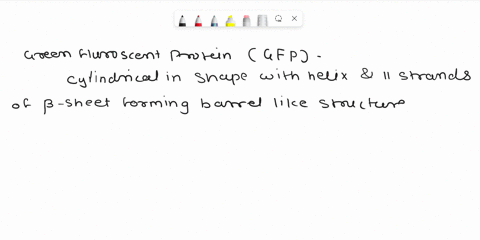 Green Fluroscent Protein (GFP).
cylindrical in shape with helix & 11 strands
of β-sheet forming barrel like structure